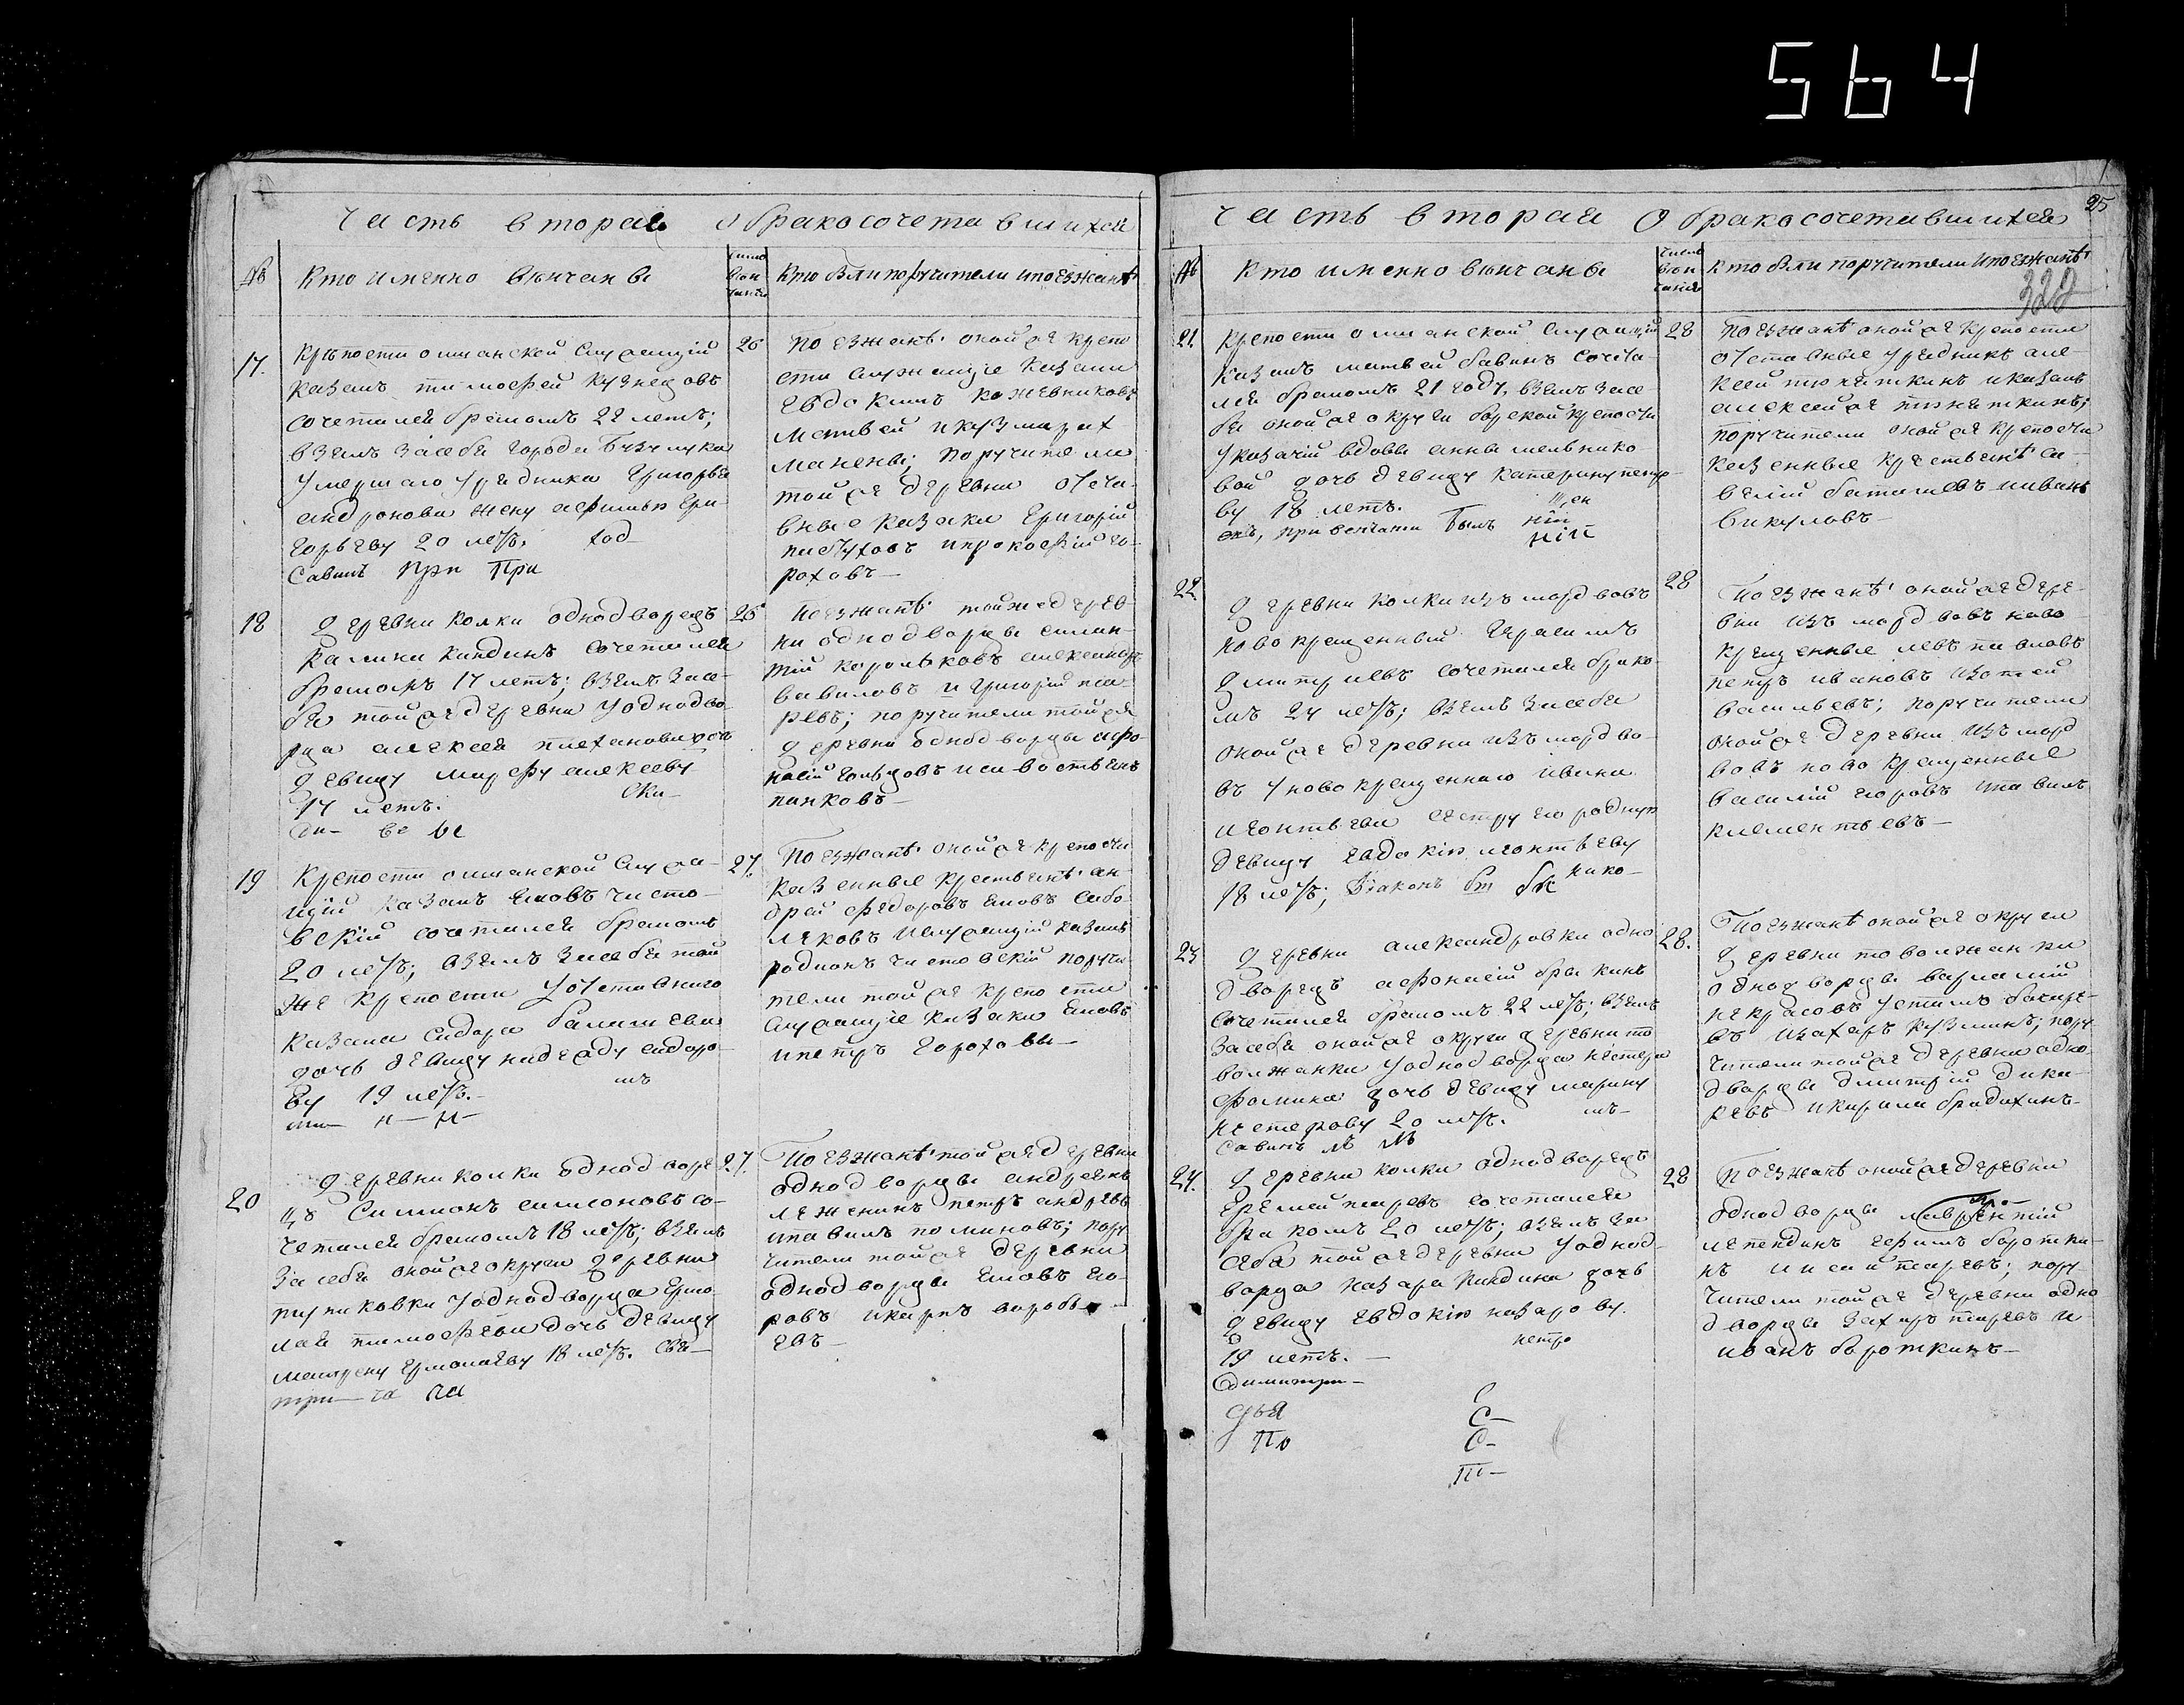 564
Часть вторая о бракосочетавшихся
№
Кто именно венчаны
число вен чания
Кто были поручители и поезжанѣ
17.
Крѣпости олшанской служащій
казакъ тимофей кузнецовъ
сочетался бракомъ 22 летъ;
взялъ засебя города бузулука
умершаго урядника Григорья
андронова жену афимью гри-
горьеву 20 летъ.
Савинъ При При
26
Поезжанѣ оной же крепо
сти служащіе казаки
евдокимъ кожевниковъ
матвей и кузма рах
манены; поручители
той же деревни отста-
вные казаки Григорій
пастуховъ и прокофій го-
роховъ
18
Деревни колки однодворецъ
калина киндинъ сочетался
бракомъ 17 летъ; взялъ засе-
бя той же деревни у однодво-
рца алексея плеханова дочь
девицу марфу алексееву
17 летъ.
26
Поезжанѣ той же дерев-
ни однодворцы силан-
тій корольковъ александръ
вавиловъ и Григорій пса-
ревъ; поручители той же
деревни однодворцы афо-
насій гольцовъ и севостьянъ
панковъ
19
Крепости олшанской служа-
щій казакъ Іаковъ чисто-
вскій сочетался бракомъ
20 летъ; взялъ засебя той
же крепости у отставнаго
казака сидора балашева
дочь девицу надежду сидоро-
ву 19 летъ.
27.
Поезжанѣ оной же крепости
казенные крестьянѣ ан-
дрей федоровъ Іаковъ собо-
леновъ и служащій казакъ
родионъ чистовскій поручи-
тели той же крепости
служащіе казаки Іаковъ
и петръ гороховы
20
Деревни колки однодворе-
цъ Симионъ симоновъ со-
четался бракомъ 18 летъ; взялъ
за себя оной же округи деревни
пупковки у однодворца ермо-
лая тимофеева дочь девицу
матрену ермолаеву 18 летъ.
27.
Поезжанѣ той же деревни
однодворцы андреянъ
леженинъ петръ андреевъ
и павилъ поминовъ; пору
чители той же деревни
однодворцы Іаковъ его-
ровъ и карпъ воробь-
евъ
Часть вторая О бракосочетавшихся
25
№
Кто именно венчаны
число вен чания
Кто были поручители и поезжанѣ
322
21.
Крепости олшанской служащій
казакъ матвей бабинъ сочета-
лся бракомъ 21 году, взялъ засе-
бя оной же округи борской крепости
у казачій вдовы анны мельнико-
вой дочь девицу катерину петро-
ву 18 летъ.
при венчаніи былъ
28
Поезжанѣ оной же крепости
отставные урядникъ але-
ксей тюняткинъ и казакъ
алексей же тюняткинъ;
Поручители оной же крепости
казенные крестьянѣ са-
велій баташевъ и иванъ
викуловъ
22
Деревни колки изъ мордвовъ
новокрещенный Герасимъ
дмитріевъ сочетался брако-
мъ 24 летъ; взялъ засебя
оной же деревни изъ мордво-
въ у новокрещеннаго ивана
леонтьева сестру его родную
девицу евдокію леонтьеву
18 летъ;
28
Поезжанѣ оной же дере-
вни изъ мордвовъ ново
крещенные левъ павловъ
петръ ивановъ изотей
васильевъ; поручители
оной же деревни изъ морд
вовъ новокрещенные
василій егоровъ и павилъ
клементьевъ
23
Деревни александровки одно
дворецъ афонасій брыкинъ
сочетался бракомъ 22 летъ; взялъ
засебя оной же округи деревни то
волжанки у однодворца нестера
фомина дочь девицу марину
нестерову 20 летъ.
савинъ
28.
Поезжанѣ оной же округи
деревни товолжанки
однодворцы варламій
некрасовъ устинъ бокаре-
въ и захаръ кузминъ; пору
чители той же деревни одно-
дворцы дмитрій дика-
ревъ и кирила брадихинъ
24.
Деревни колки однодворецъ
еремей псаревъ сочетался
бракомъ 20 летъ; взялъ за
себя той же деревни у однод
ворца назара киндина дочь
девицу евдокію назарову.
19 летъ.
петро
Димитри
28
Поезжанѣ оной же деревни
однодворцы лаврентій
лепендинъ ефимъ бороткин-
нъ и исай псаревъ; пору
чители той же деревни одно
дворцы захаръ псаревъ и
иванъ бороткинъ